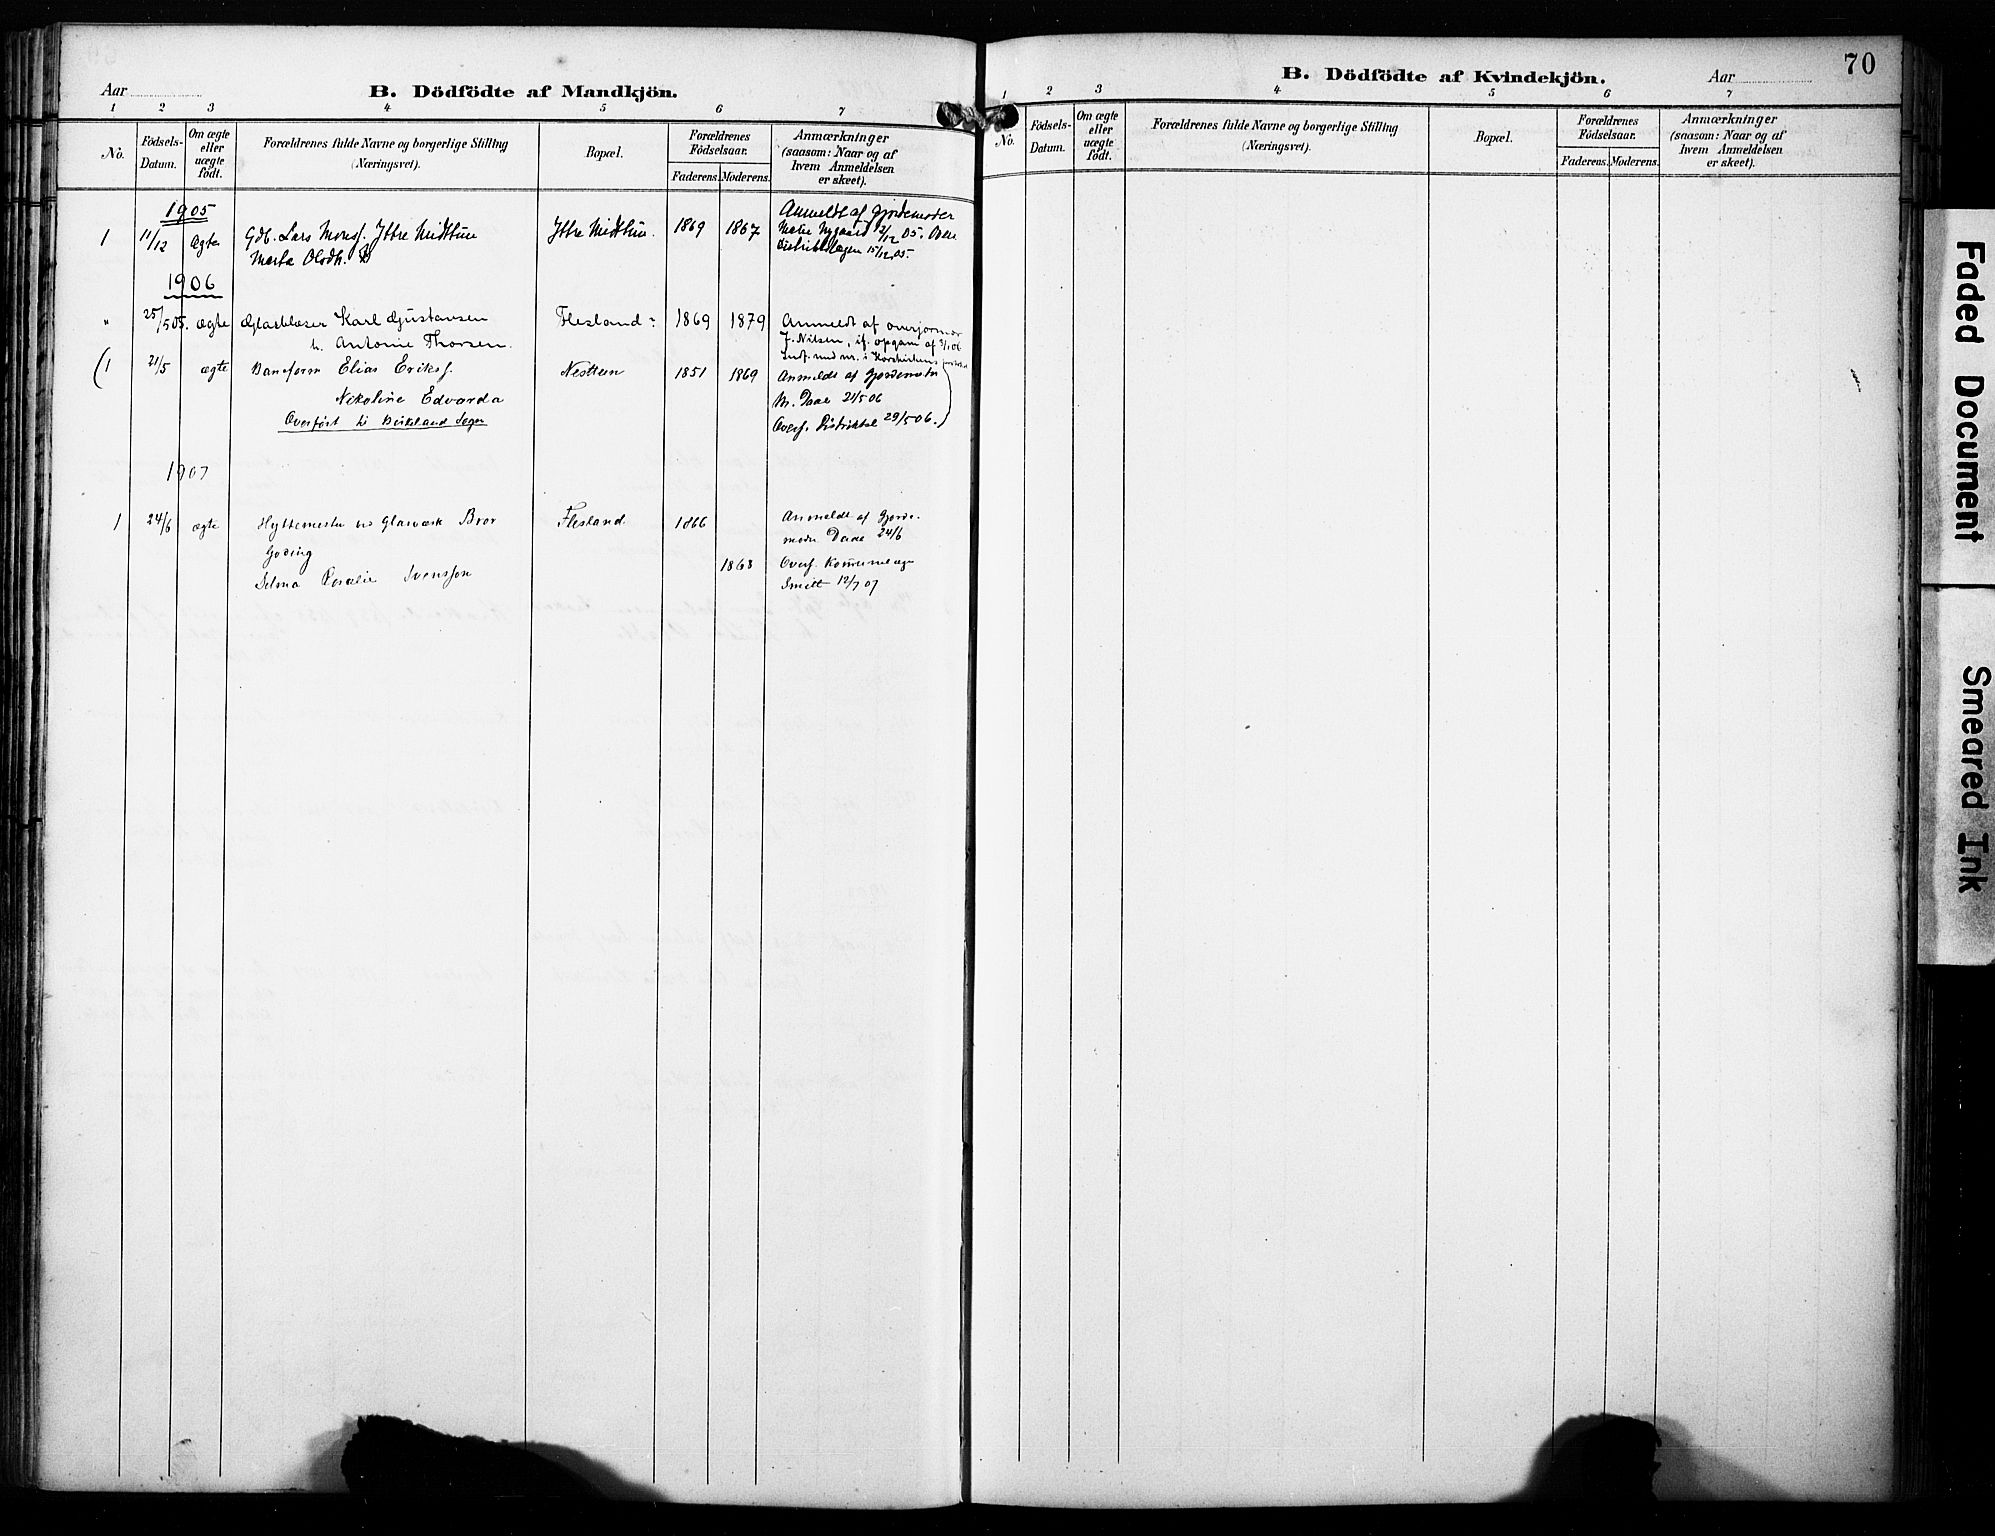 Aar
B. Dödfödte af Mandkjön.
1 2 3 4 5 6 7
No.
Födsels-
Datum.
Om ægte
eller
uægte
födt.
Forældrenes fulde Navne og borgerlige Stilling
(Næringsvei).
Bopæl.
Forældrenes
Födselsaar.
Faderens. Moderens.
Anmærkninger
(saasom: Naar og af
hvem Anmeldelsen
er skeet).
1905
1 11/12 Ægte Gdb. Lars Monsf. Ytre Midthun Ytre Midthun. 1869 1867 Anmeldt af Gjordemoder
Nygaard 2/12 05.
Marta Olsdtr. 15/12 05.
1906
" 25/5 05. ægte Glasblæser Karl Gustavsen Flesland 1869 1879 Anmeldt af
h. Antonie Thorsen. J. Nilsen, if. opgave af 3/1 06
(1 21/5 ægte Baneform Elias Eriksf. Nesttun 1851 1869 Anmeldt af Gjordemoder
Nikoline Edvarda M. Daae 21/5 06
Overført til Birkeland Sogn Overf. 29/5 06.)
1907
1 24/6 ægte Hyttemester ved Glasværk Bror Flesland 1866 Anmeldt af Gjorde-
Goding moder Daae 24/6
1868 Overf. Kommunelæge
Selma Rosalie Svensson Smitt 12/7 07
70
B. Dödfödte af Kvindekjön.
Aar
1 2 3 4 5 6 7
No.
Födsels-
Datum.
Om ægte
eller
uægte
födt.
Forældrenes fulde Navne og borgerlige Stilling
(Næringsvei).
Bopæl.
Forældrenes
Födselsaar.
Faderens. Moderens.
Anmærkninger
(saasom: Naar og af
hvem Anmeldelsen
er skeet).
Faded Document
Smeared Ink